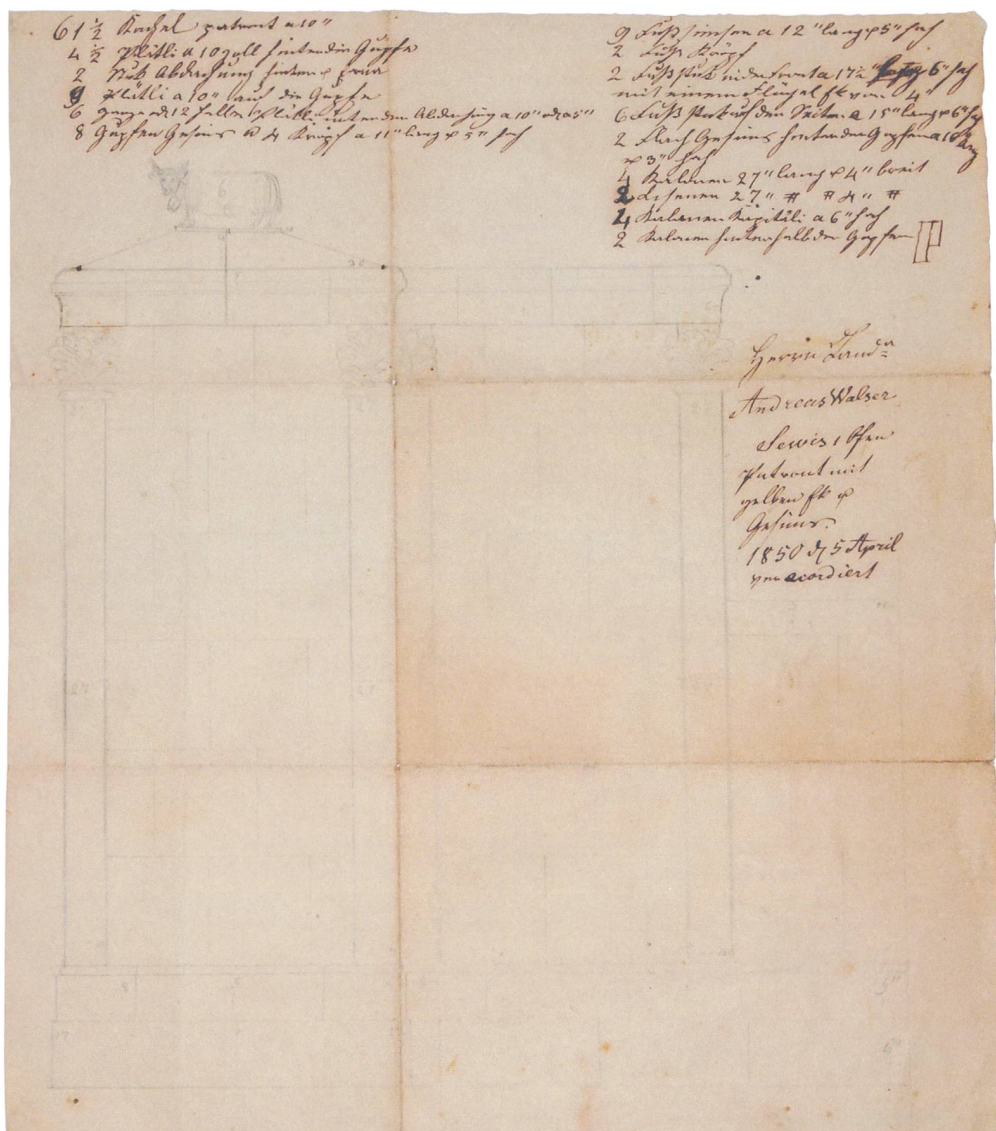 61 ½ Kachel patront a 10"
4 ½ Plätli a 10 zoll hinter die Gupfe
2 Stuk Abdachung hinten
9 Plätli a 10" auf die Gupfe
6 ganze od 12 halbe Plätli unter den Abdachung a 10" od a 5"
8 Gupfen Gesims u 4 Kröpf a 11" lang u 5" hoch
9 Fuß simsen a 12" lang u 5" hoch
2 Fuß Kröpf
2 Fuß stuk in der Front a 17½" 6" hoch
mit einem Flügel fk von 4"
6 Fuß stuk auf den Seiten a 15" lang u 6" hoch
2 Flach Gesims hinter der Gupfen a 10" lang
u 3" hoch
4 Kalonen 27" lang u 4" breit
2 Lisenen 27" # # 4" #
4 Kalonen Kapitäli a 6" hoch
2 Kalonen hinterhalb der Gupfen
Herrn Landa
Andreas Walser
Sewis 1 Ofen
Patront mit
gelben fk u
Gesims.
1850 d 5 April
veracordiert
27
27
8
5"
6"